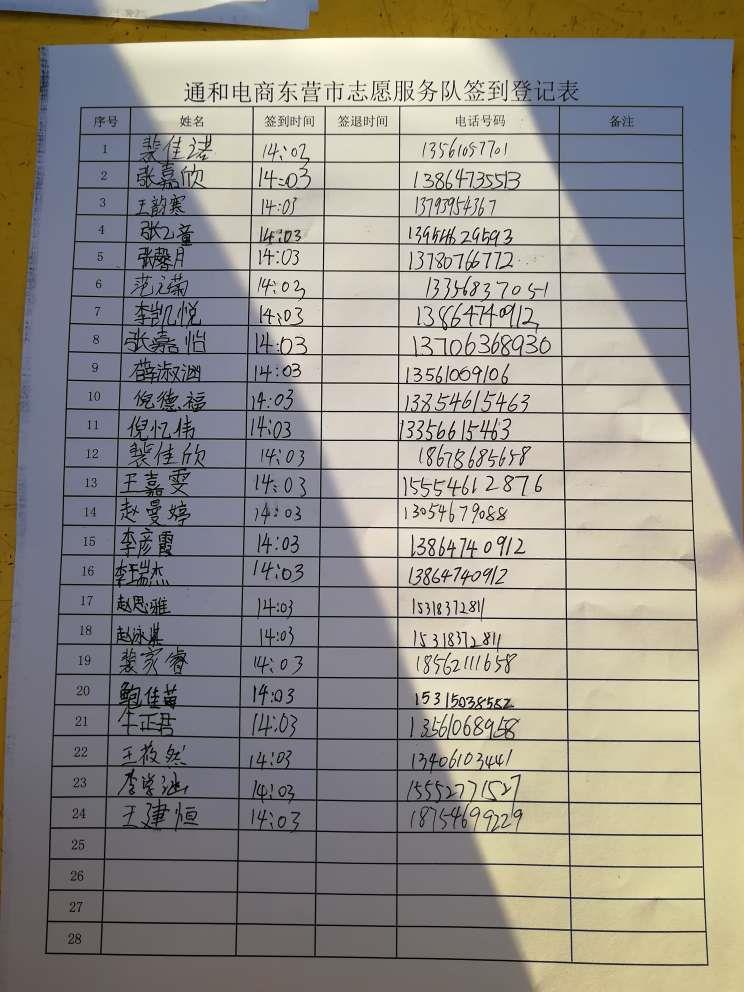 通和电商东营市志愿服务队签到登记表
序号 姓名 签到时间 签退时间 电话号码 备注
1 裴佳诺 14:02 13561057701
2 张嘉欣 14:03 13864735513
3 王韵寒 14:03 13793954367
4 张乙童 14:03 13954629593
5 张馨月 14:03 13780766772
6 范元菊 14:02 13356837051
7 李凯悦 14:03 13864740912
8 张嘉怡 14:03 13706368930
9 薛淑涵 14:03 13561009106
10 倪德福 14:03 13854615463
11 倪忆伟 14:03 13356615463
12 裴佳欣 14:03 18678685658
13 王嘉雯 14:03 15554612876
14 赵曼婷 14:03 13054679088
15 李彦霞 14:03 13864740912
16 李瑞杰 14:03 13864740912
17 赵思雅 14:03 15318372811
18 赵泳淇 14:03 15318372811
19 裴家睿 14:03 18562111658
20 鲍佳苗 14:03 15315038582
21 牛正君 14:03 13561068958
22 王筱然 14:03 13406103441
23 李 14:03 15552771527
24 王建恒 14:03 18754699229
25
26
27
28